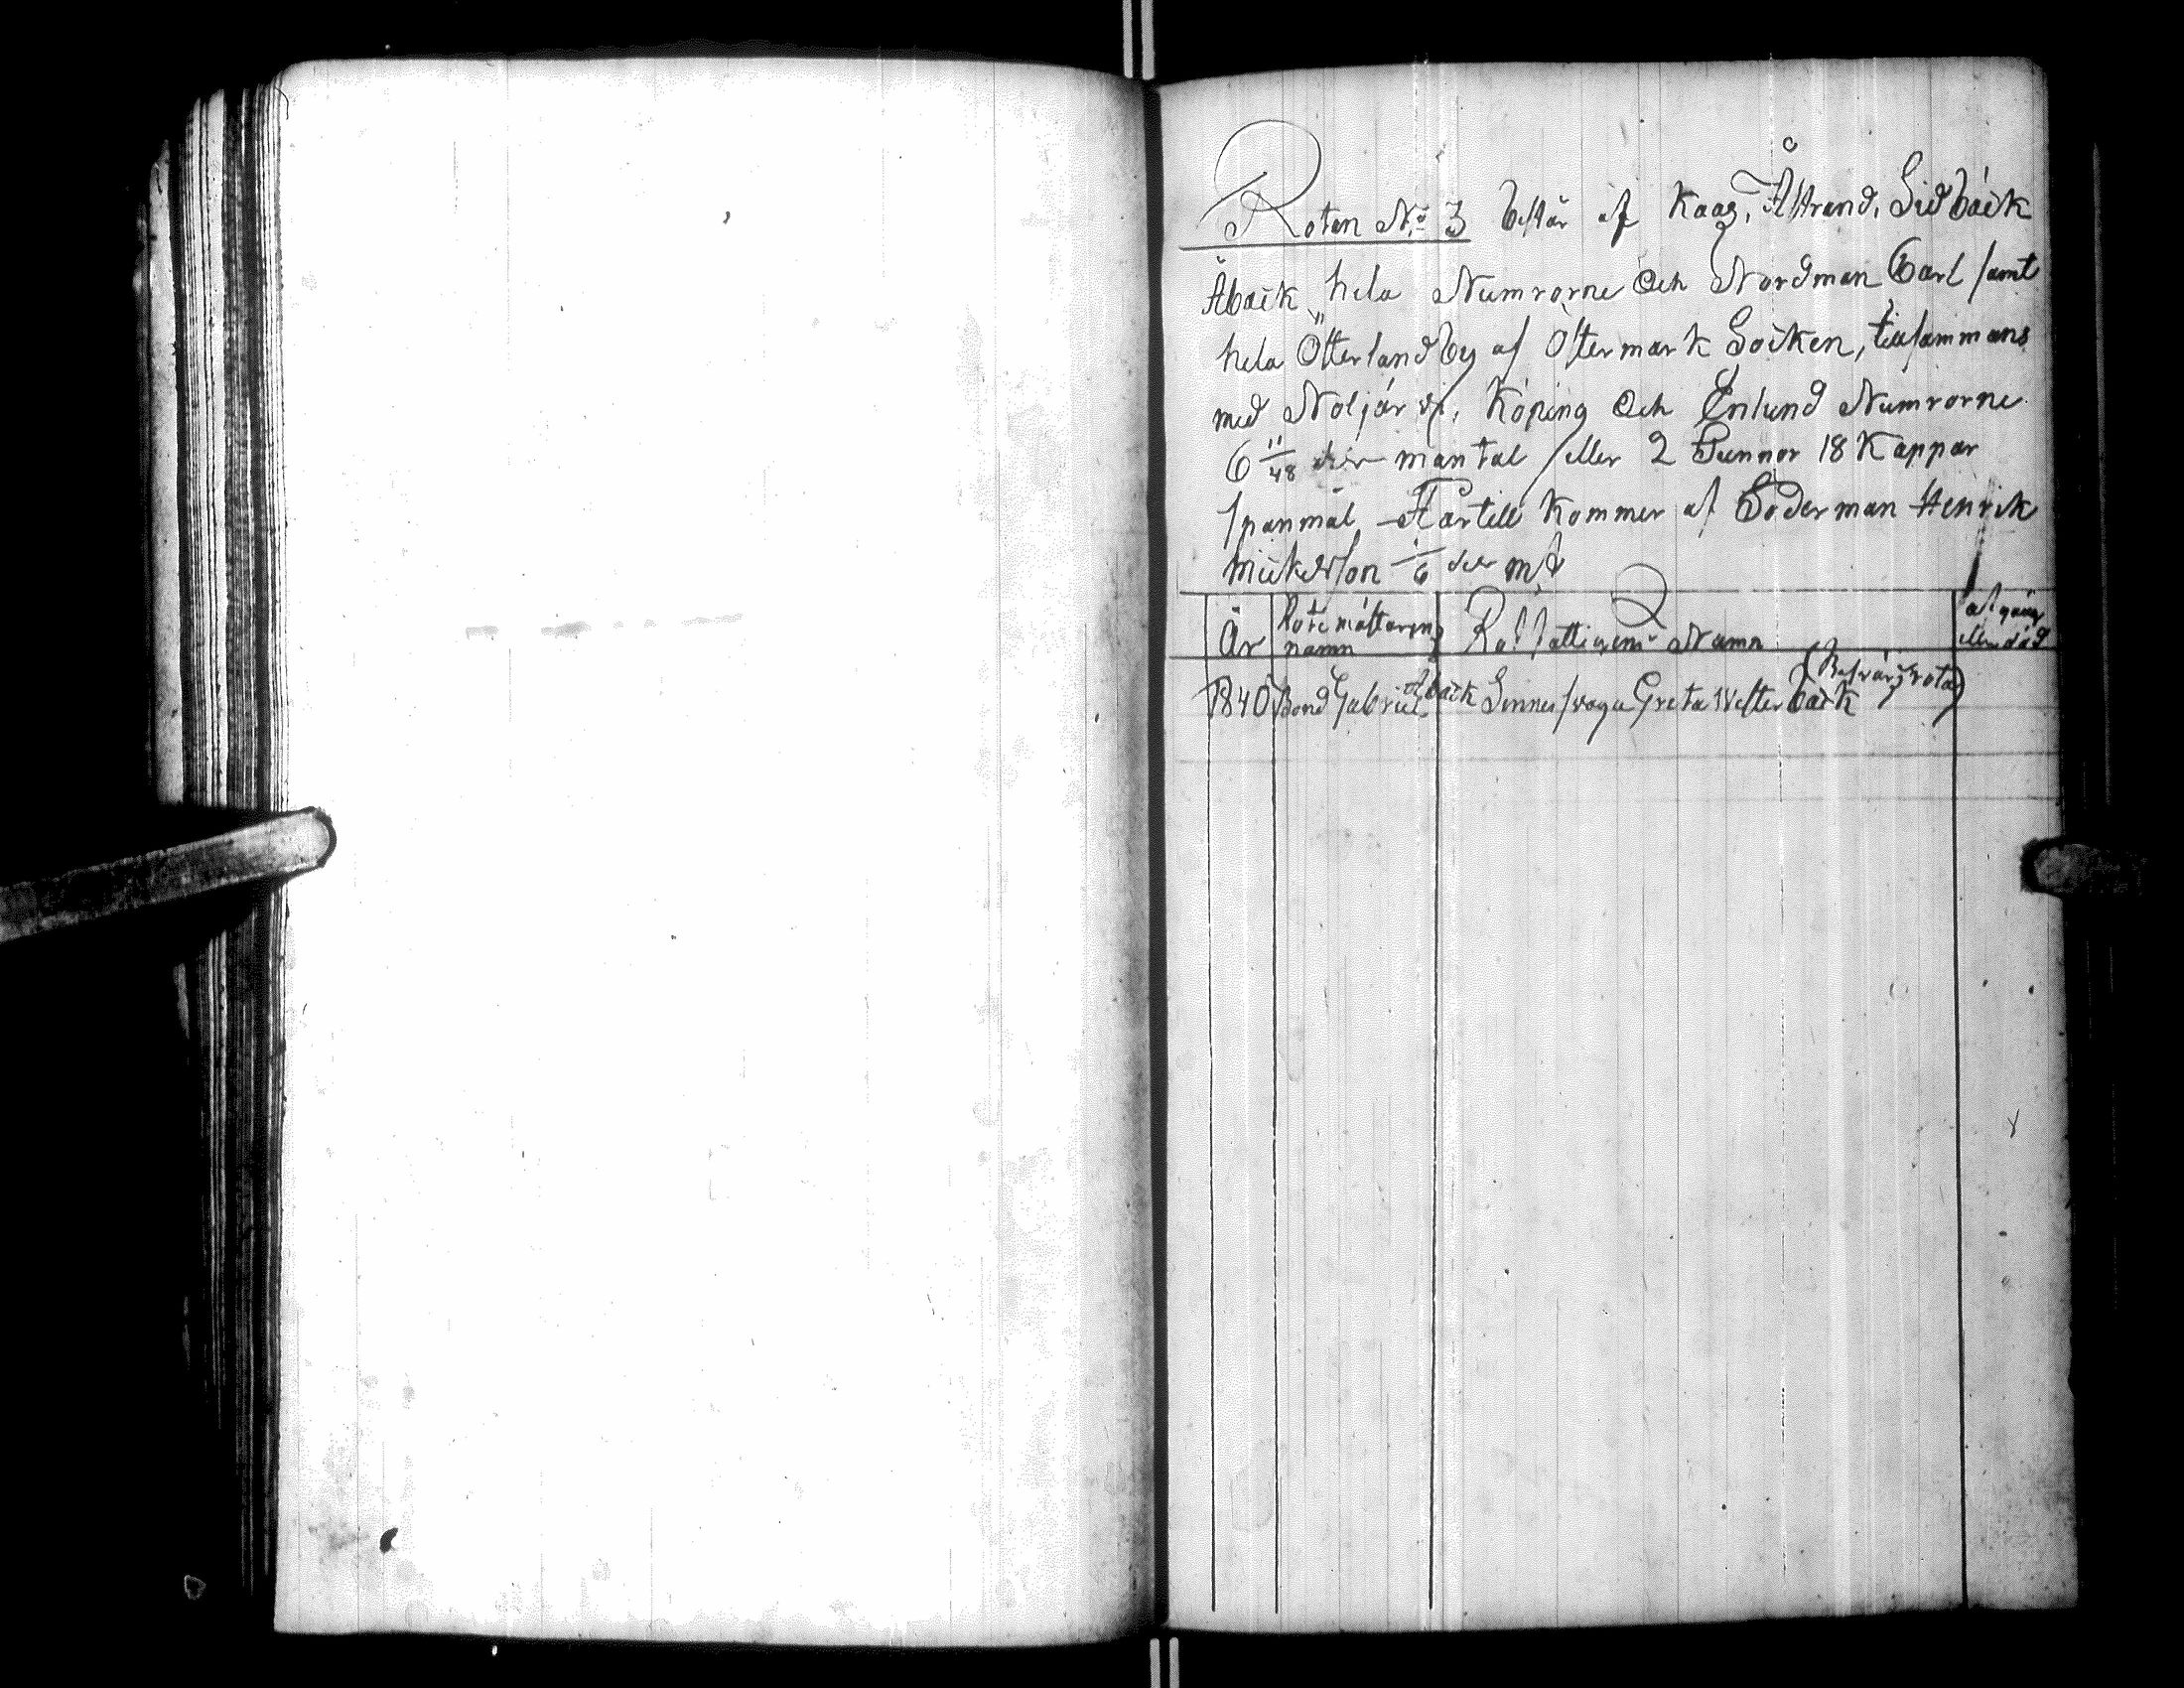 Roten No 3 består af Kaag, Åstrand, Lidbäck
Åbäck hela Numrorne Och Nordman Carl samt
hela Ötterland by af Östermark Socken, tillsammans
med Noljärvi, Köping Och Enlund Numrorne
6 11/48 dels mantal eller 2 Tunnor 18 Kappar
spanmål, Härtill Kommer af Söderman Henrik
Mickelsson 1/6 dels mtl
År Rotemästarens namn Rotfattigens Namn afgång eller död
1840 Bond Gabriel Åbäck Sinnessvaga Greta Westerbäck (Besvärsrota)